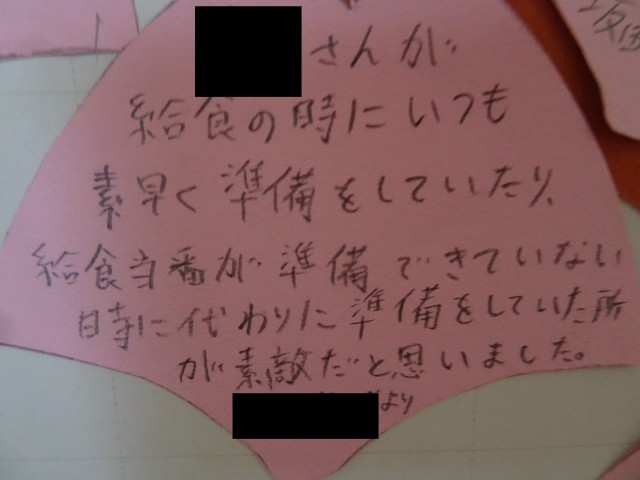 さんが
給食の時にいつも
素早く準備をしていたり、
給食当番が準備できていない
時に代わりに準備をしていた所
が素敵だと思いました。
より